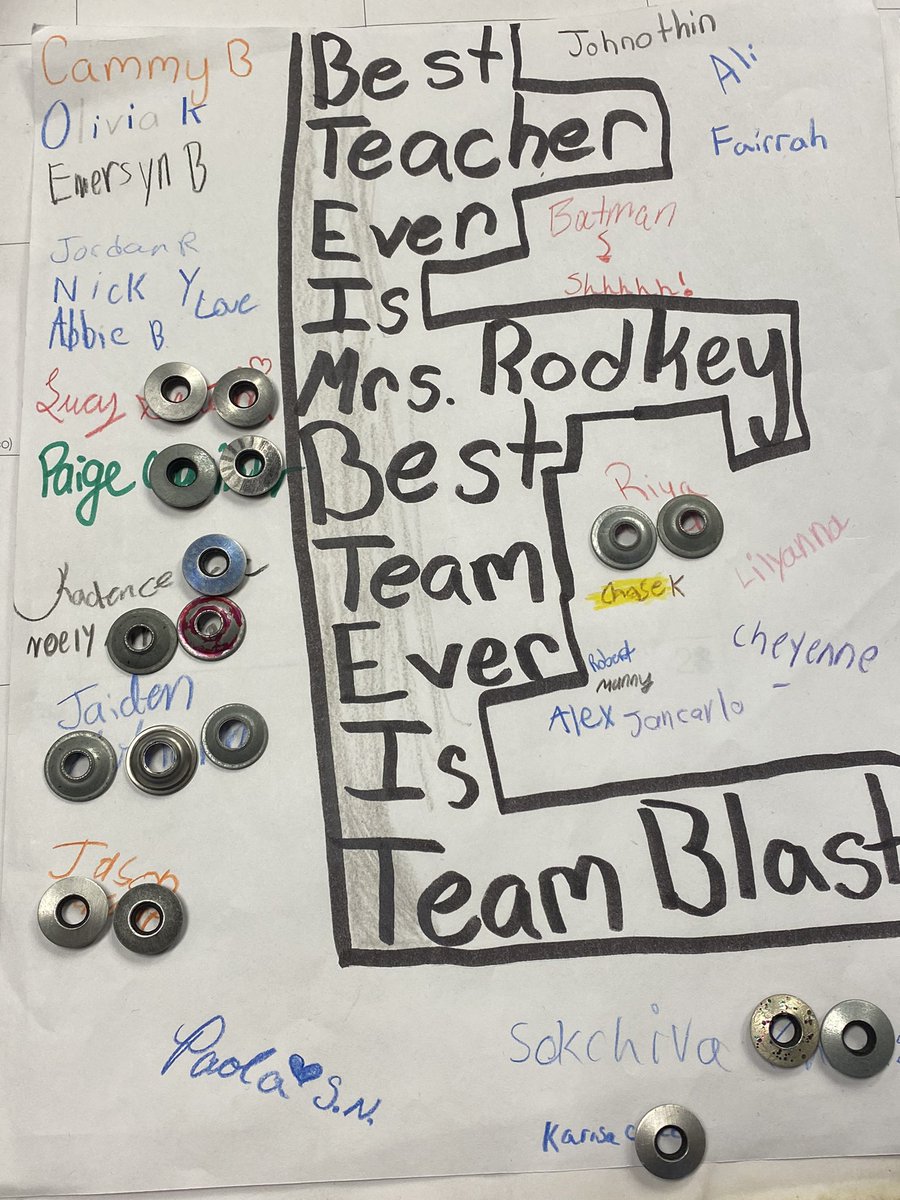 Cammy B
Olivia K
Emersyn B
Jordan R
Nick Y
Love
Abbie B
Lucy
Paige
Kadence
Noely
Jaiden
Jason
Best
Teacher
Ever
Is
Mrs. Rodkey
Best
Team
Ever
Is
Team Blast
Johnothin
Ali
Fairrah
Batman
Shhhhh!
Riya
Lilyanna
Chase K
Cheyenne
Robert
Manny
Alex
Jancarlo
Paola S.N.
Sokchiva
Karisa